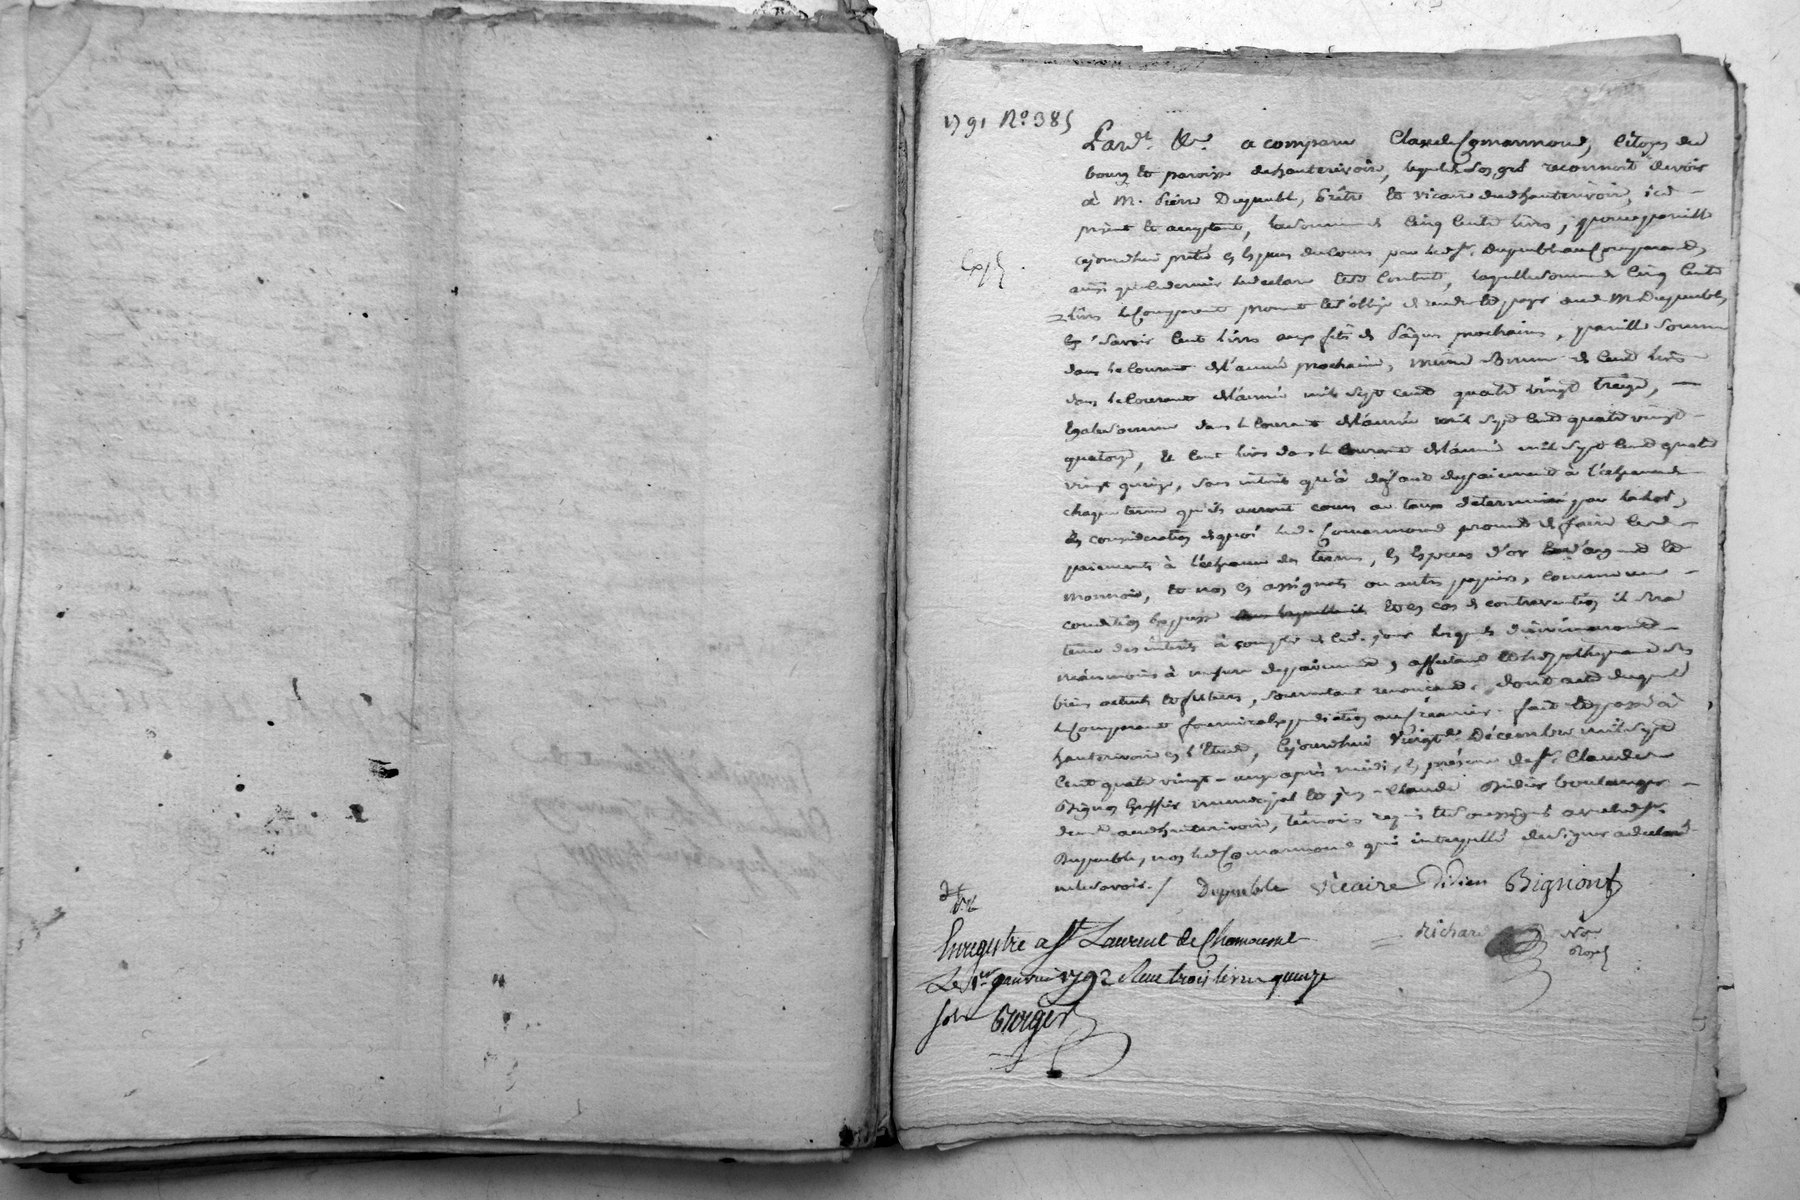 1791 No. 385
Pardt. &c. a comparu Claude Comarmond, citoyen du
bourg et paroisse dehauterivoire, lequel deson gré reconnoit devoir
à M. Pierre Dupuble, prêtre et vicaire dud hauterivoire, ici
présent et acceptant, lasomme de cinq cents livres, pour pareille
cejourdhui prêté en espèces decours par led sr. dupuble au Comparant,
Exp.
ainsi que ledernier ledeclare et content, laquelle somme de cinq cents
livres le Comparant promet et s'oblige de rendre et payer aud M. Dupuble,
savoir cent livres aux fêtes de Pâques prochaines, pareille somme
dans le courant del'année prochaine, même somme de cent livres
dans le courant del'année mil sept cent quatre vingt treize,
égale somme dans le courant del'année mil sept cent quatre vingt
quatorze, et cent livres dans le courant del'année mil sept cent quatre
vingt quinze, sans intérêts qu'à défaut depaiement à l'échéance de
chaque terme qu'ils auront cours au taux déterminé par la loi,
en considération dequoi led. Comarmond promet de faire lesd
paiements à l'échéance des termes, en espèces d'or et d'argent et
monnoie, et non en assignats ou autres papiers, comme une
condition expresse et en cas de contravention il sera
tenu des intérêts à compter de ced. jour lesquels diminueront
néanmoins à mesure depaiement, affectant et hypothéquant ses
biens actuels et futurs, soumettant renonçant. dont acte duquel
le Comparant fournira expédition au créancier. fait et passé à
hauterivoire en l'Etude, cejourdhui vingt Décembre mil sept
cent quatre vingt-onze après midi, en présence de sr. Claude
Bignon greffier municipal et Jean-Claude Didier boulanger
dem. aud hauterivoire, témoins requis et soussignés avec led sr.
Dupuble, non led Comarmond qui interpellé designer a declaré
nelesavoir. / Dupuble vicaire Didier Bignont
Richard Nre
Enregistré a St Laurent de Chamousset
Le 1er janvier 1792 Reçu trois livres quinze
sols Berger